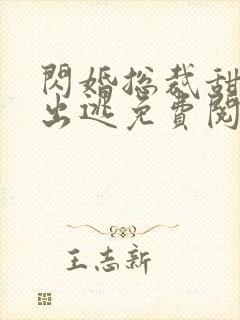 閃婚總裁甜
出逃免費閱
王志新